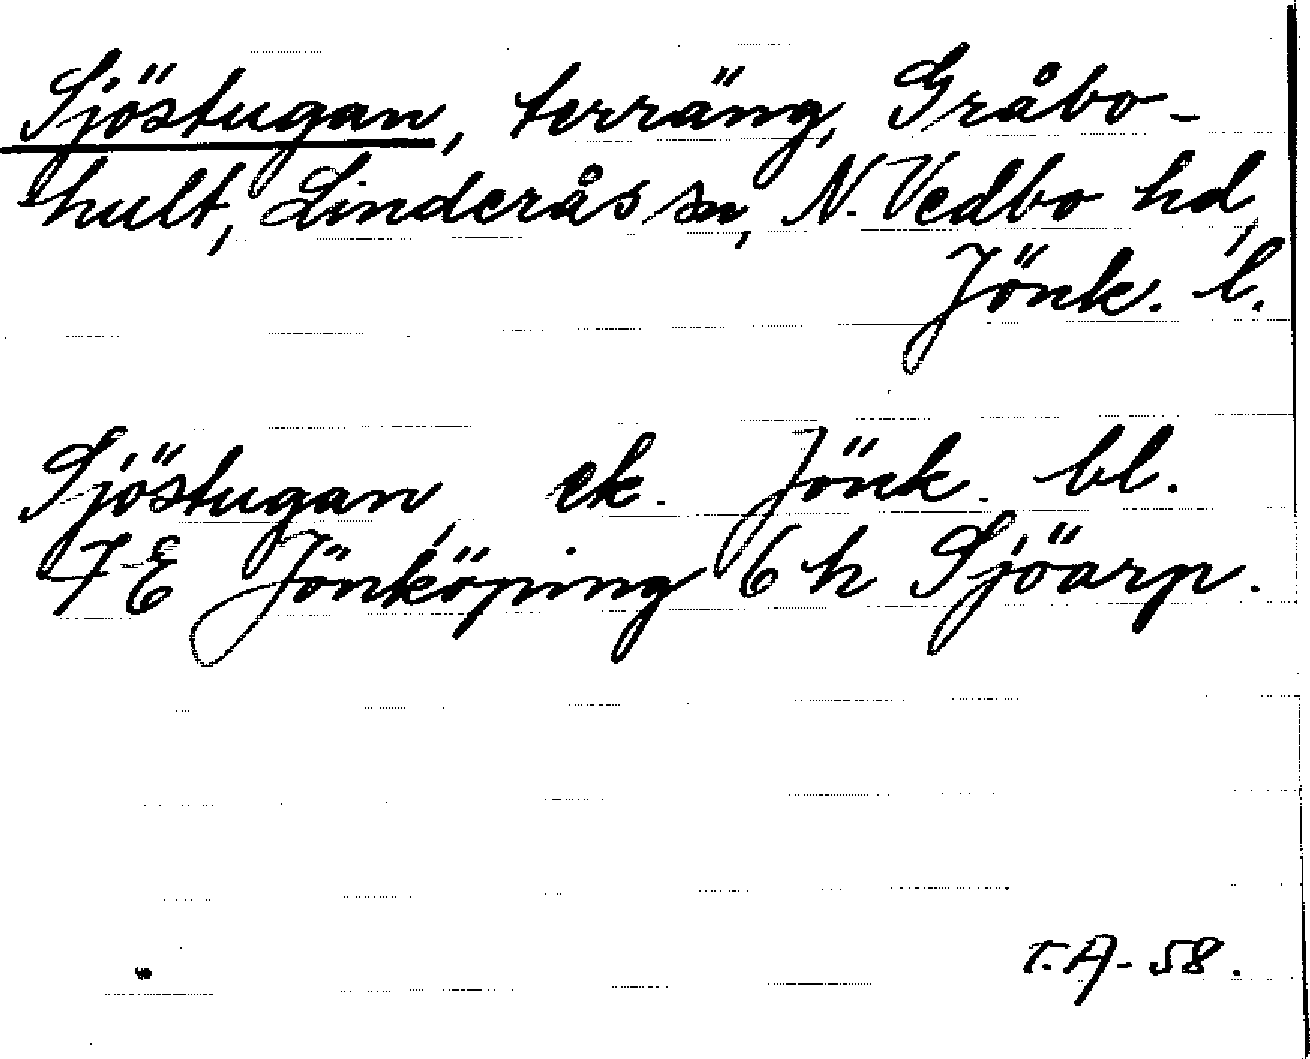 Sjöstugan, terräng, Gråbo-
hult, Linderås sn, N. Vedbo hd,
Jönk. l.
Sjöstugan, ek. Jönk. bl.
7E Jönköping 6h Sjöarp.
T.A-58.